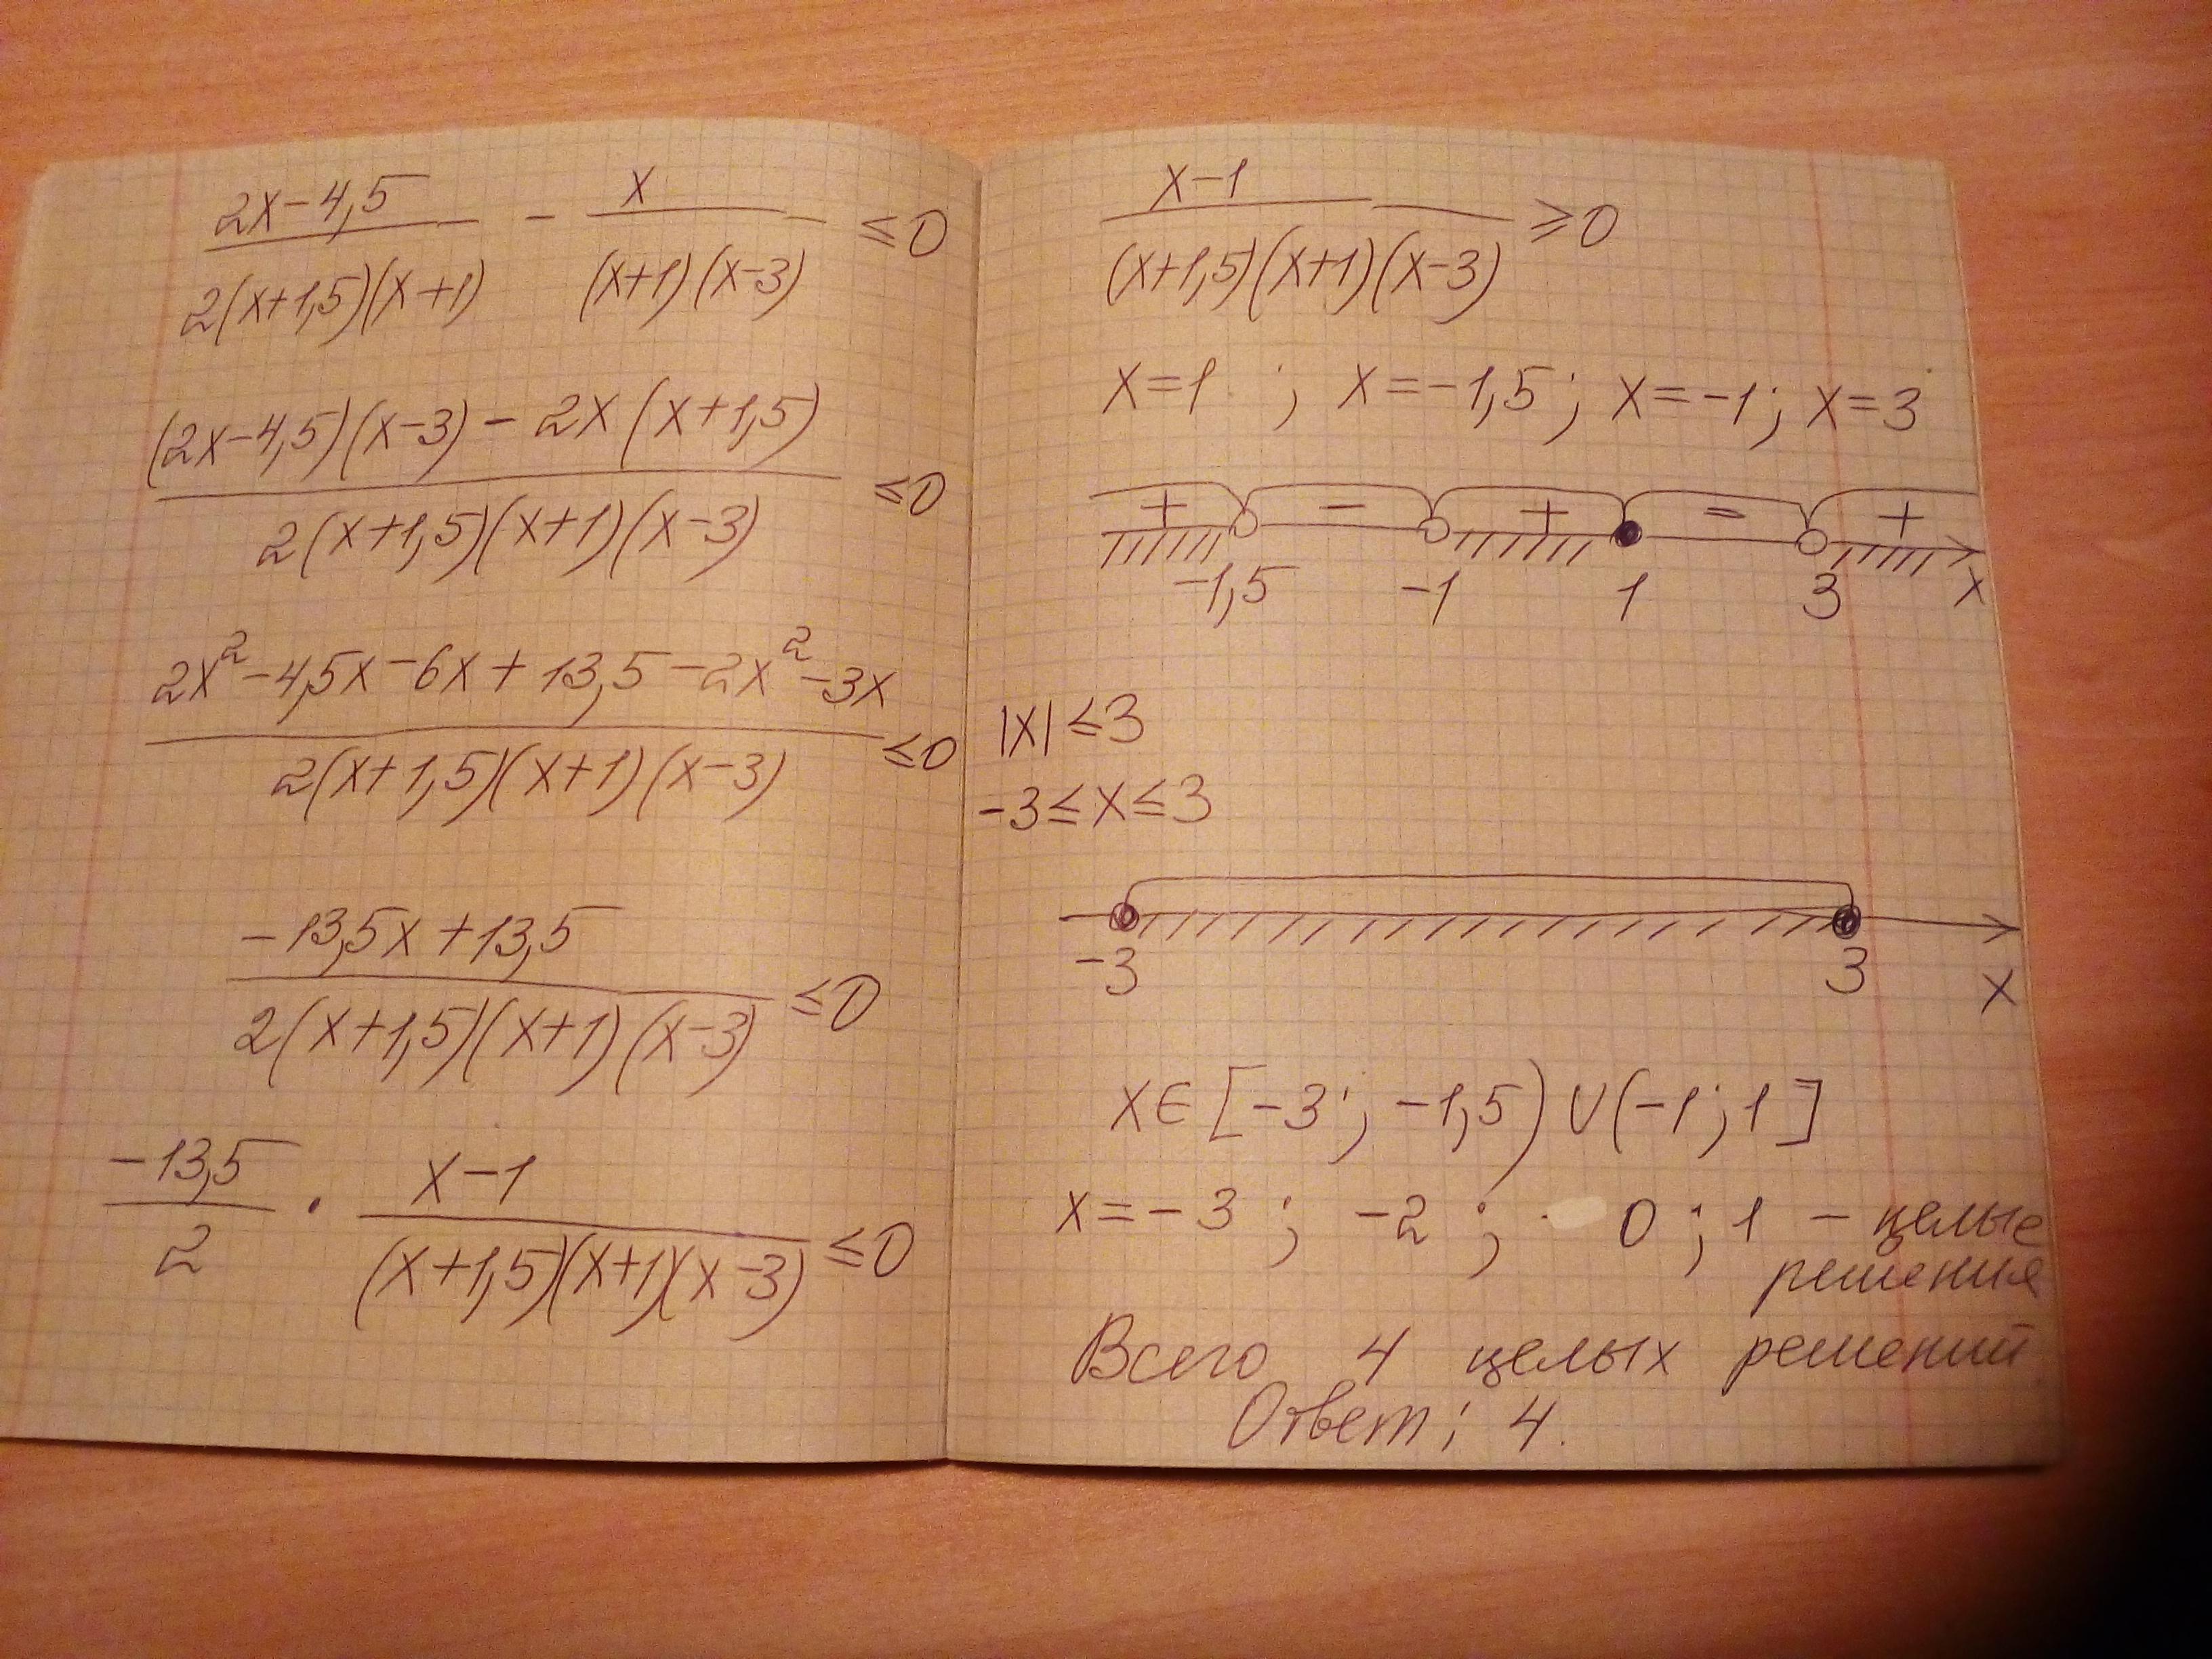 (2x-4,5)/(2(x+1,5)(x+1)) - x/((x+1)(x-3)) ≤0
((2x-4,5)(x-3) - 2x(x+1,5))/(2(x+1,5)(x+1)(x-3)) ≤0
(2x²-4,5x-6x+13,5-2x²-3x)/(2(x+1,5)(x+1)(x-3)) ≤0
(-13,5x+13,5)/(2(x+1,5)(x+1)(x-3)) ≤0
-13,5/2 · (x-1)/((x+1,5)(x+1)(x-3)) ≤0
(x-1)/((x+1,5)(x+1)(x-3)) ≥0
x=1 ; x=-1,5; x=-1; x=3
+ - + - +
-1,5 -1 1 3 x
|x|≤3
-3≤x≤3
-3 3 x
x∈[-3; -1,5)∪(-1;1]
x=-3 ; -2 ; 0 ; 1 - целые
решения
Всего 4 целых решений
Ответ: 4.